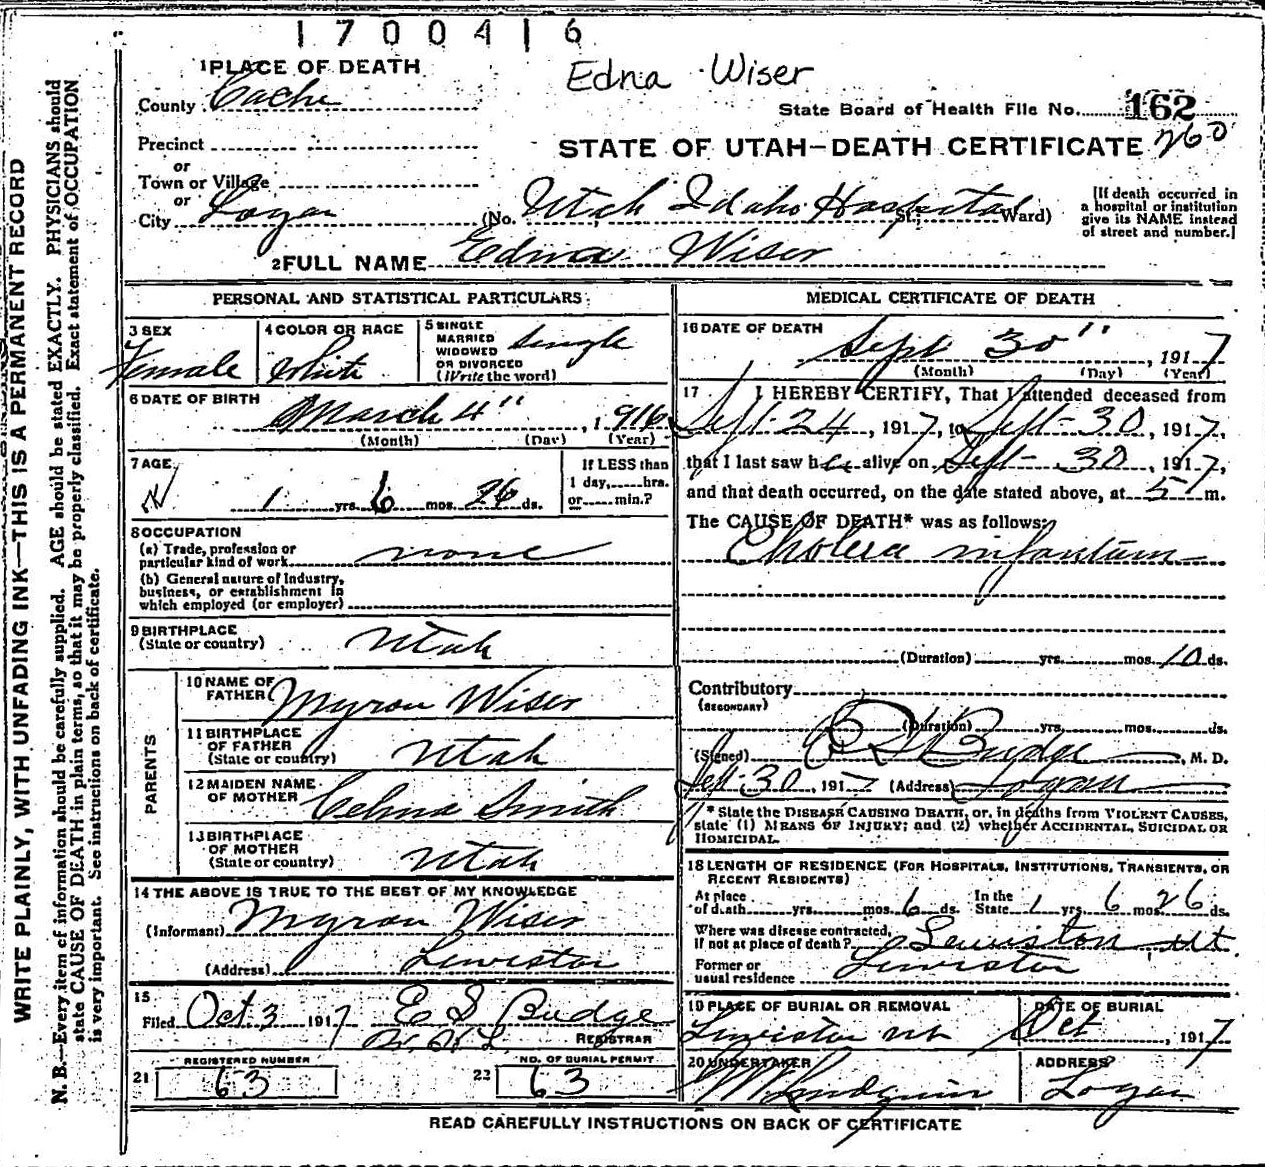 1700416
Edna Wiser
1 PLACE OF DEATH
County Cache
State Board of Health File No. 162
260
Precinct
or
Town or Village
or
City Logan
STATE OF UTAH—DEATH CERTIFICATE
(No. Utah Idaho Hospital St. Ward)
[If death occurred in
a hospital or institution
give its NAME instead
of street and number.]
2 FULL NAME Edna Wiser
PERSONAL AND STATISTICAL PARTICULARS
3 SEX
Female
4 COLOR OR RACE
White
5 SINGLE
MARRIED
WIDOWED
OR DIVORCED
(Write the word)
Single
6 DATE OF BIRTH
March 4", 1916
(Month) (Day) (Year)
7 AGE
1 yrs. 6 mos. 26 ds.
If LESS than
1 day,......hrs.
or......min.?
8 OCCUPATION
(a) Trade, profession or
particular kind of work none
(b) General nature of Industry,
business, or establishment in
which employed (or employer)
9 BIRTHPLACE
(State or country) Utah
PARENTS
10 NAME OF
FATHER Myron Wiser
11 BIRTHPLACE
OF FATHER
(State or country) Utah
12 MAIDEN NAME
OF MOTHER Celma Smith
13 BIRTHPLACE
OF MOTHER
(State or country) Utah
14 THE ABOVE IS TRUE TO THE BEST OF MY KNOWLEDGE
(Informant) Myron Wiser
(Address) Lewiston
15
Filed Oct. 3 1917 E S Budge
REGISTRAR
REGISTERED NUMBER
21 63
NO. OF BURIAL PERMIT
22 63
MEDICAL CERTIFICATE OF DEATH
16 DATE OF DEATH
Sept 30", 1917
(Month) (Day) (Year)
17 I HEREBY CERTIFY, That I attended deceased from
Sept-24, 1917, to Sept-30, 1917,
that I last saw her alive on Sept- 30, 1917,
and that death occurred, on the date stated above, at 5 m.
The CAUSE OF DEATH* was as follows:
Cholera infantum
(Duration) yrs. mos. 10 ds.
Contributory
(SECONDARY)
(Duration) yrs. mos. ds.
(Signed) Budge, M. D.
Sept-30 1917 (Address) Logan
* State the DISEASE CAUSING DEATH, or, in deaths from VIOLENT CAUSES,
state (1) MEANS OF INJURY; and (2) whether ACCIDENTAL, SUICIDAL OR
HOMICIDAL.
18 LENGTH OF RESIDENCE (FOR HOSPITALS, INSTITUTIONS, TRANSIENTS, OR
RECENT RESIDENTS)
At place
of death yrs. mos. 6 ds. In the
State 1 yrs. 6 mos. 26 ds.
Where was disease contracted,
if not at place of death? Lewiston Ut
Former or
usual residence Lewiston
19 PLACE OF BURIAL OR REMOVAL
Lewiston Ut
DATE OF BURIAL
Oct, 1917
20 UNDERTAKER
ADDRESS
Logan
READ CAREFULLY INSTRUCTIONS ON BACK OF CERTIFICATE
WRITE PLAINLY, WITH UNFADING INK—THIS IS A PERMANENT RECORD
N. B.—Every item of information should be carefully supplied. AGE should be stated EXACTLY. PHYSICIANS should
state CAUSE OF DEATH in plain terms, so that it may be properly classified. Exact statement of OCCUPATION
is very important. See instructions on back of certificate.